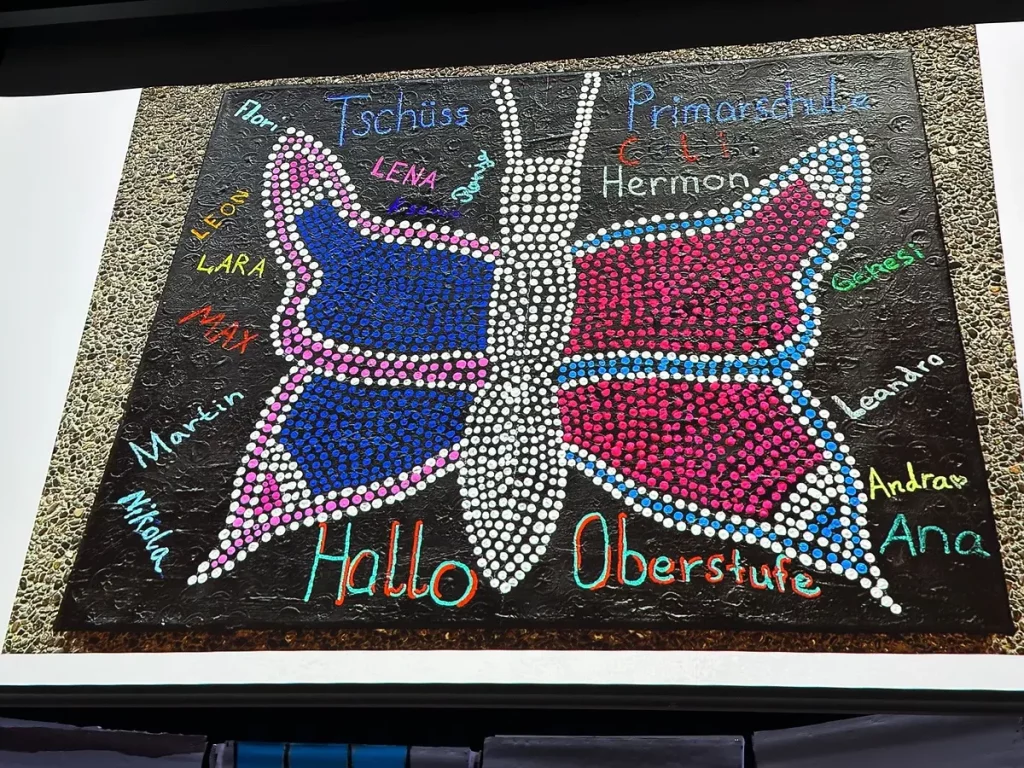 Flori
Tschüss
Primarschule
LENA
Hermon
LEON
LARA
Genesi
MAX
Leandro
Martin
Andra
Nikola
Ana
Hallo
Oberstufe